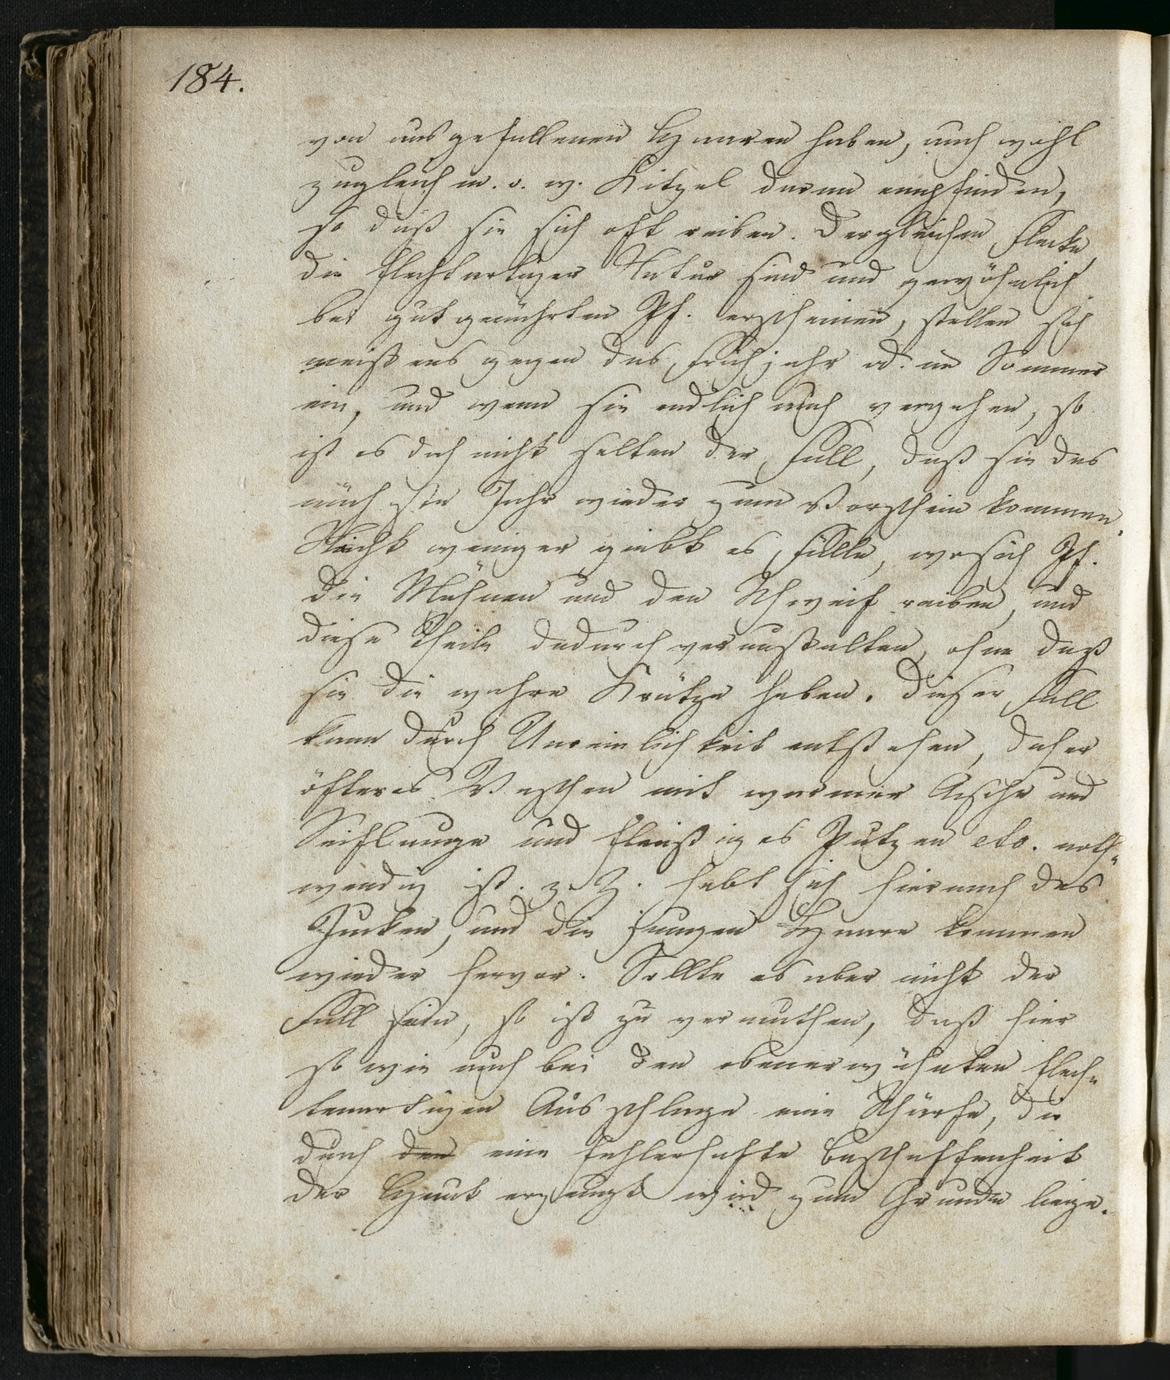 184.
von ausgefallenen Haaren haben, auch wohl
zugleich m. o. w. Kitzel daran empfinden,
so daß sie sich oft reiben. Dergleichen Flecke,
die flechtartiger Natur sind und gewöhnlich
bei gut genährten Pf. erscheinen, stellen sich
meistens gegen das Frühjahr od. im Sommer
ein, und wenn sie endlich auch vergehen, so
ist es doch nicht selten der Fall, daß sie das
nächste Jahr wieder zum Vorschein kommen.
Nicht weniger giebt es Fälle, wo sich Pf.
die Mähnen und den Schweif reiben, und
diese Theile dadurch verunstalten, ohne daß
sie die wahre Krätze haben. Dieser Fall
kann durch Unreinlichkeit entstehen, daher
öfteres Waschen mit warmer Asche und
Seiflauge und fleißiges Putzen etc. noth=
wendig ist. z. Z. hebt sich hiernach das
Jucken, und die jungen Haare kommen
wieder hervor. Sollte es aber nicht der
Fall sein, so ist zu vermuthen, daß hier
so wie auch bei den obenerwähnten flech=
tenartigen Ausschlage eine Schärfe, die
durch den eine fehlerhafte Beschaffenheit
der Haut erzeugt wird zum Grunde liege.